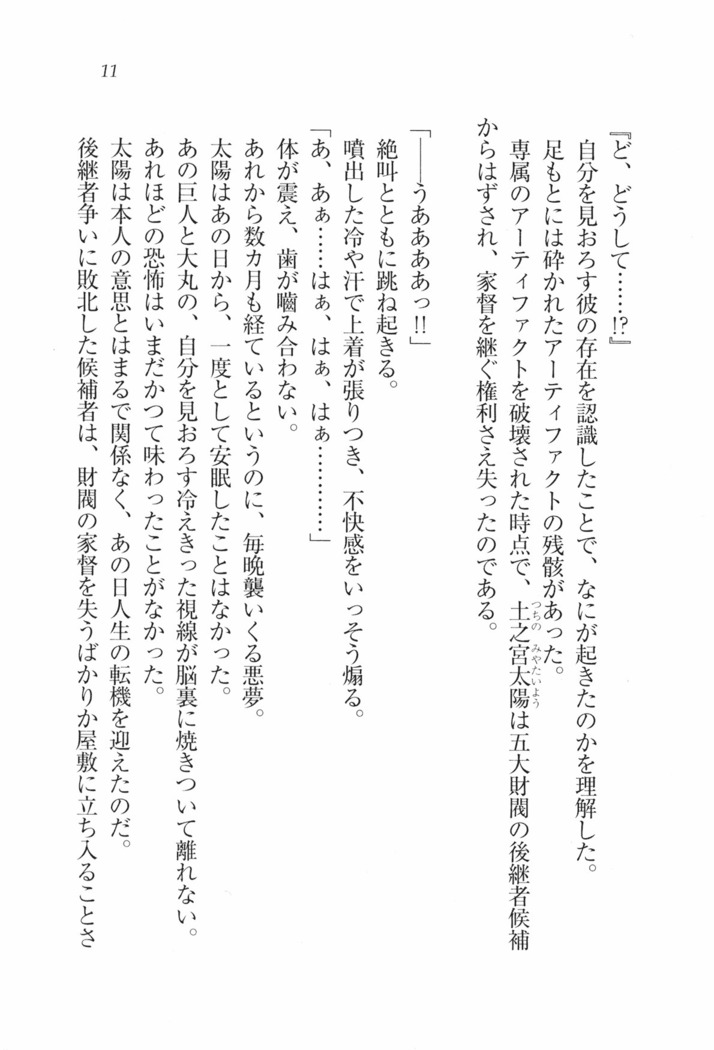 11
『ど、どうして……!?』
自分を見おろす彼の存在を認識したことで、なにが起きたのかを理解した。
足もとには砕かれたアーティファクトの残骸があった。
専属のアーティファクトを破壊された時点で、土之宮太陽は五大財閥の後継者候補
つちの みやたいよう
からはずされ、家督を継ぐ権利さえ失ったのである。
「――うああああっ!!」
絶叫とともに跳ね起きる。
噴出した冷や汗で上着が張りつき、不快感をいっそう煽る。
「あ、あぁ……はぁ、はぁ、はぁ…………」
体が震え、歯が嚙み合わない。
あれから数ヵ月も経ているというのに、毎晩襲いくる悪夢。
太陽はあの日から、一度として安眠したことはなかった。
あの巨人と大丸の、自分を見おろす冷えきった視線が脳裏に焼きついて離れない。
あれほどの恐怖はいまだかつて味わったことがなかった。
太陽は本人の意思とはまるで関係なく、あの日人生の転機を迎えたのだ。
後継者争いに敗北した候補者は、財閥の家督を失うばかりか屋敷に立ち入ることさ